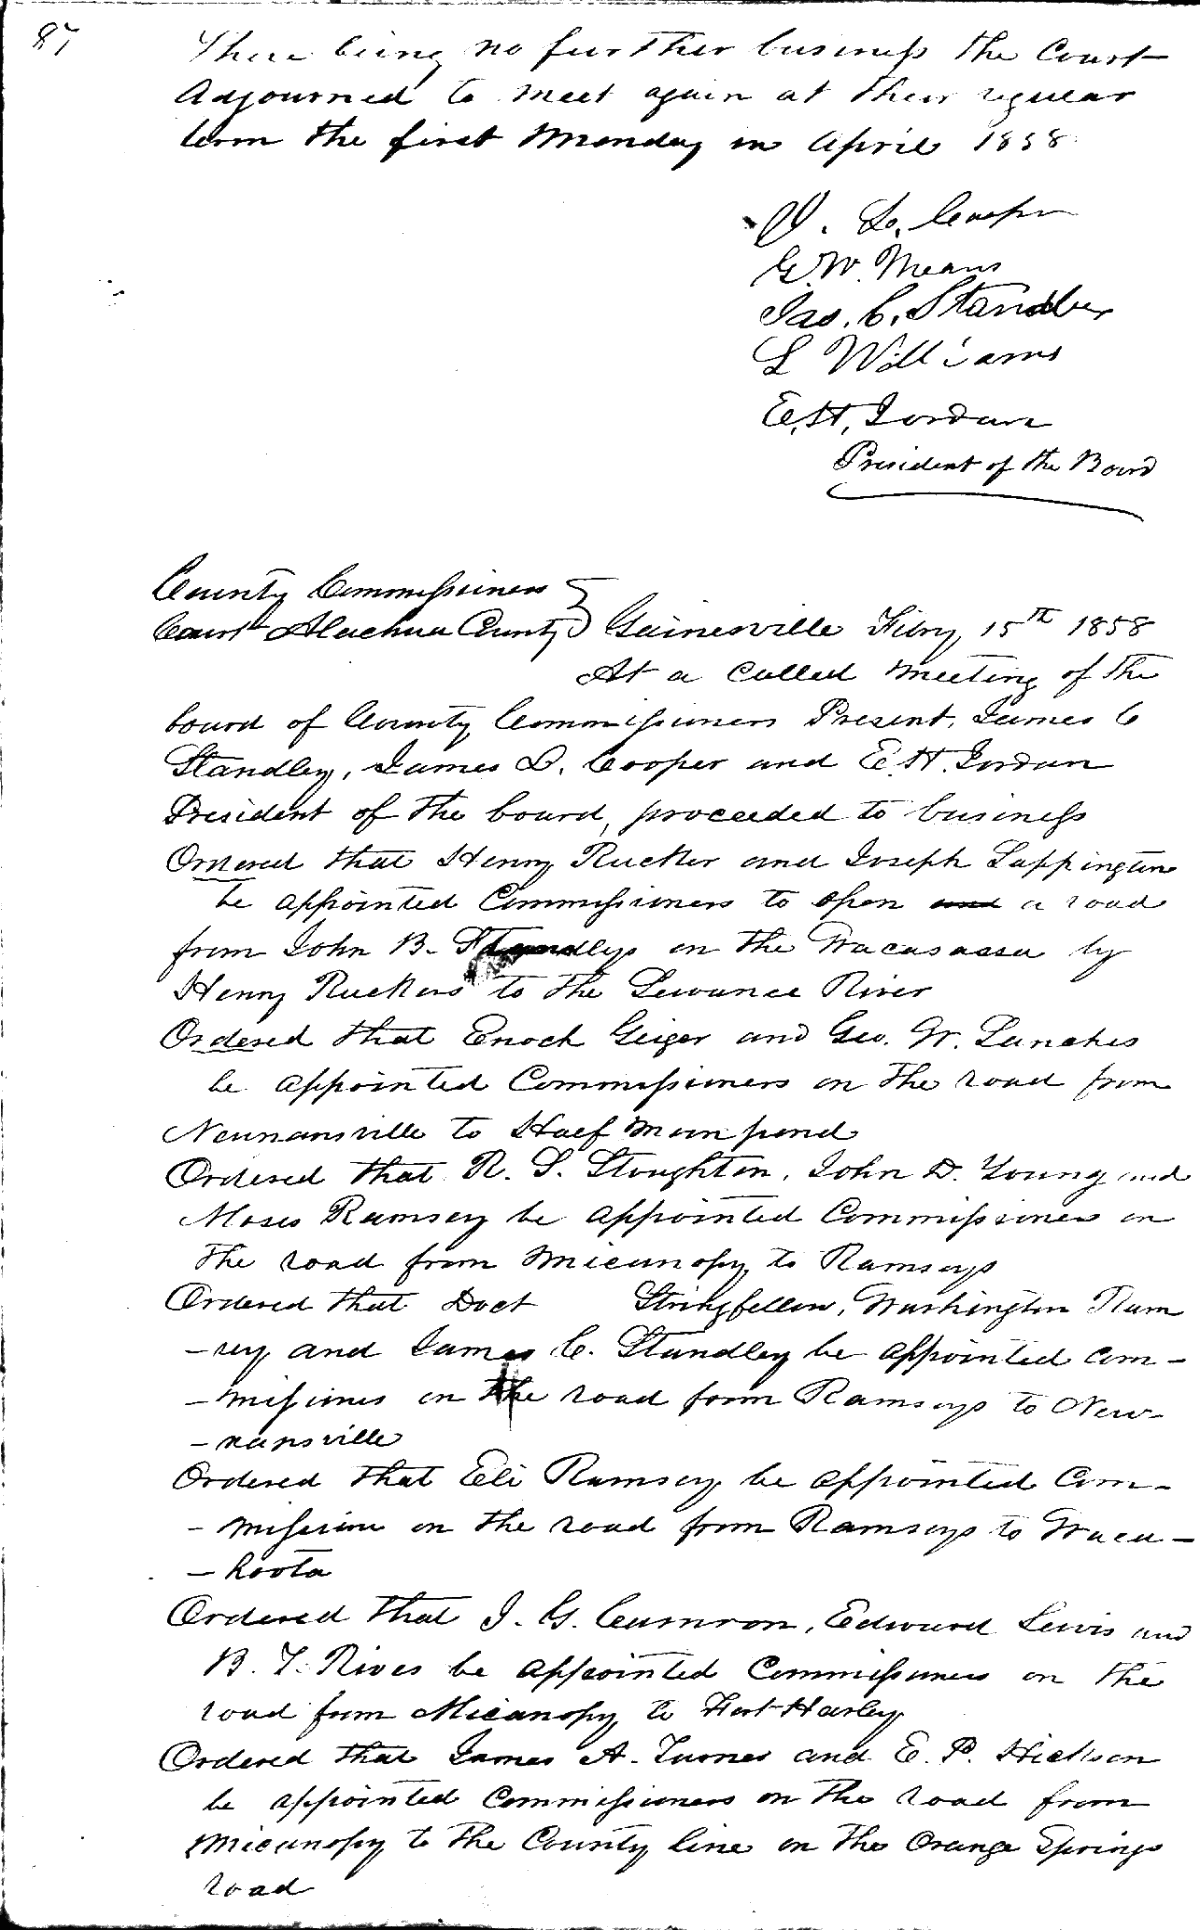 87
There being no further business the Court
Adjourned to meet again at their regular
term the first Monday in April 1858
J. D. Cooper
G. W. Means
Jas. C. Standley
L Williams
E. H. Jordan
President of the Board
County Commissioners
Court Alachua County } Gainesville Feby 15th 1858
At a called meeting of the
board of County Commissioners Present, James C
Standley, James D. Cooper and E. H. Jordan
President of the board, proceeded to business
Ordered that Henry Rucker and Joseph Sappington
be appointed Commissioners to open and a road
from John B. Standlys on the Wacasassa by
Henry Ruckers to the Suwanee River
Ordered that Enoch Geiger and Geo. W. Sanches
be appointed Commissioners on the road from
Newnansville to Half moon pond
Ordered that R. S. Stoughton, John D. Young and
Moses Ramsey be appointed Commissioners on
the road from Micanopy to Ramseys
Ordered that Doct Stringfellow, Washington Ram
-sey and James C. Standley be appointed com-
-missioners on the road from Ramseys to New-
-nansville
Ordered that Eli Ramsey be appointed Com-
-missioner on the road from Ramseys to Waca-
-hoota
Ordered that J. G. Cumron, Edward Lewis and
B. T. Rives be appointed Commissioners on the
road from Micanopy to Fort Harley
Ordered that James A. Turner and E. P. Hickson
be appointed Commissioners on the road from
Micanopy to the County line on the Orange Springs
road